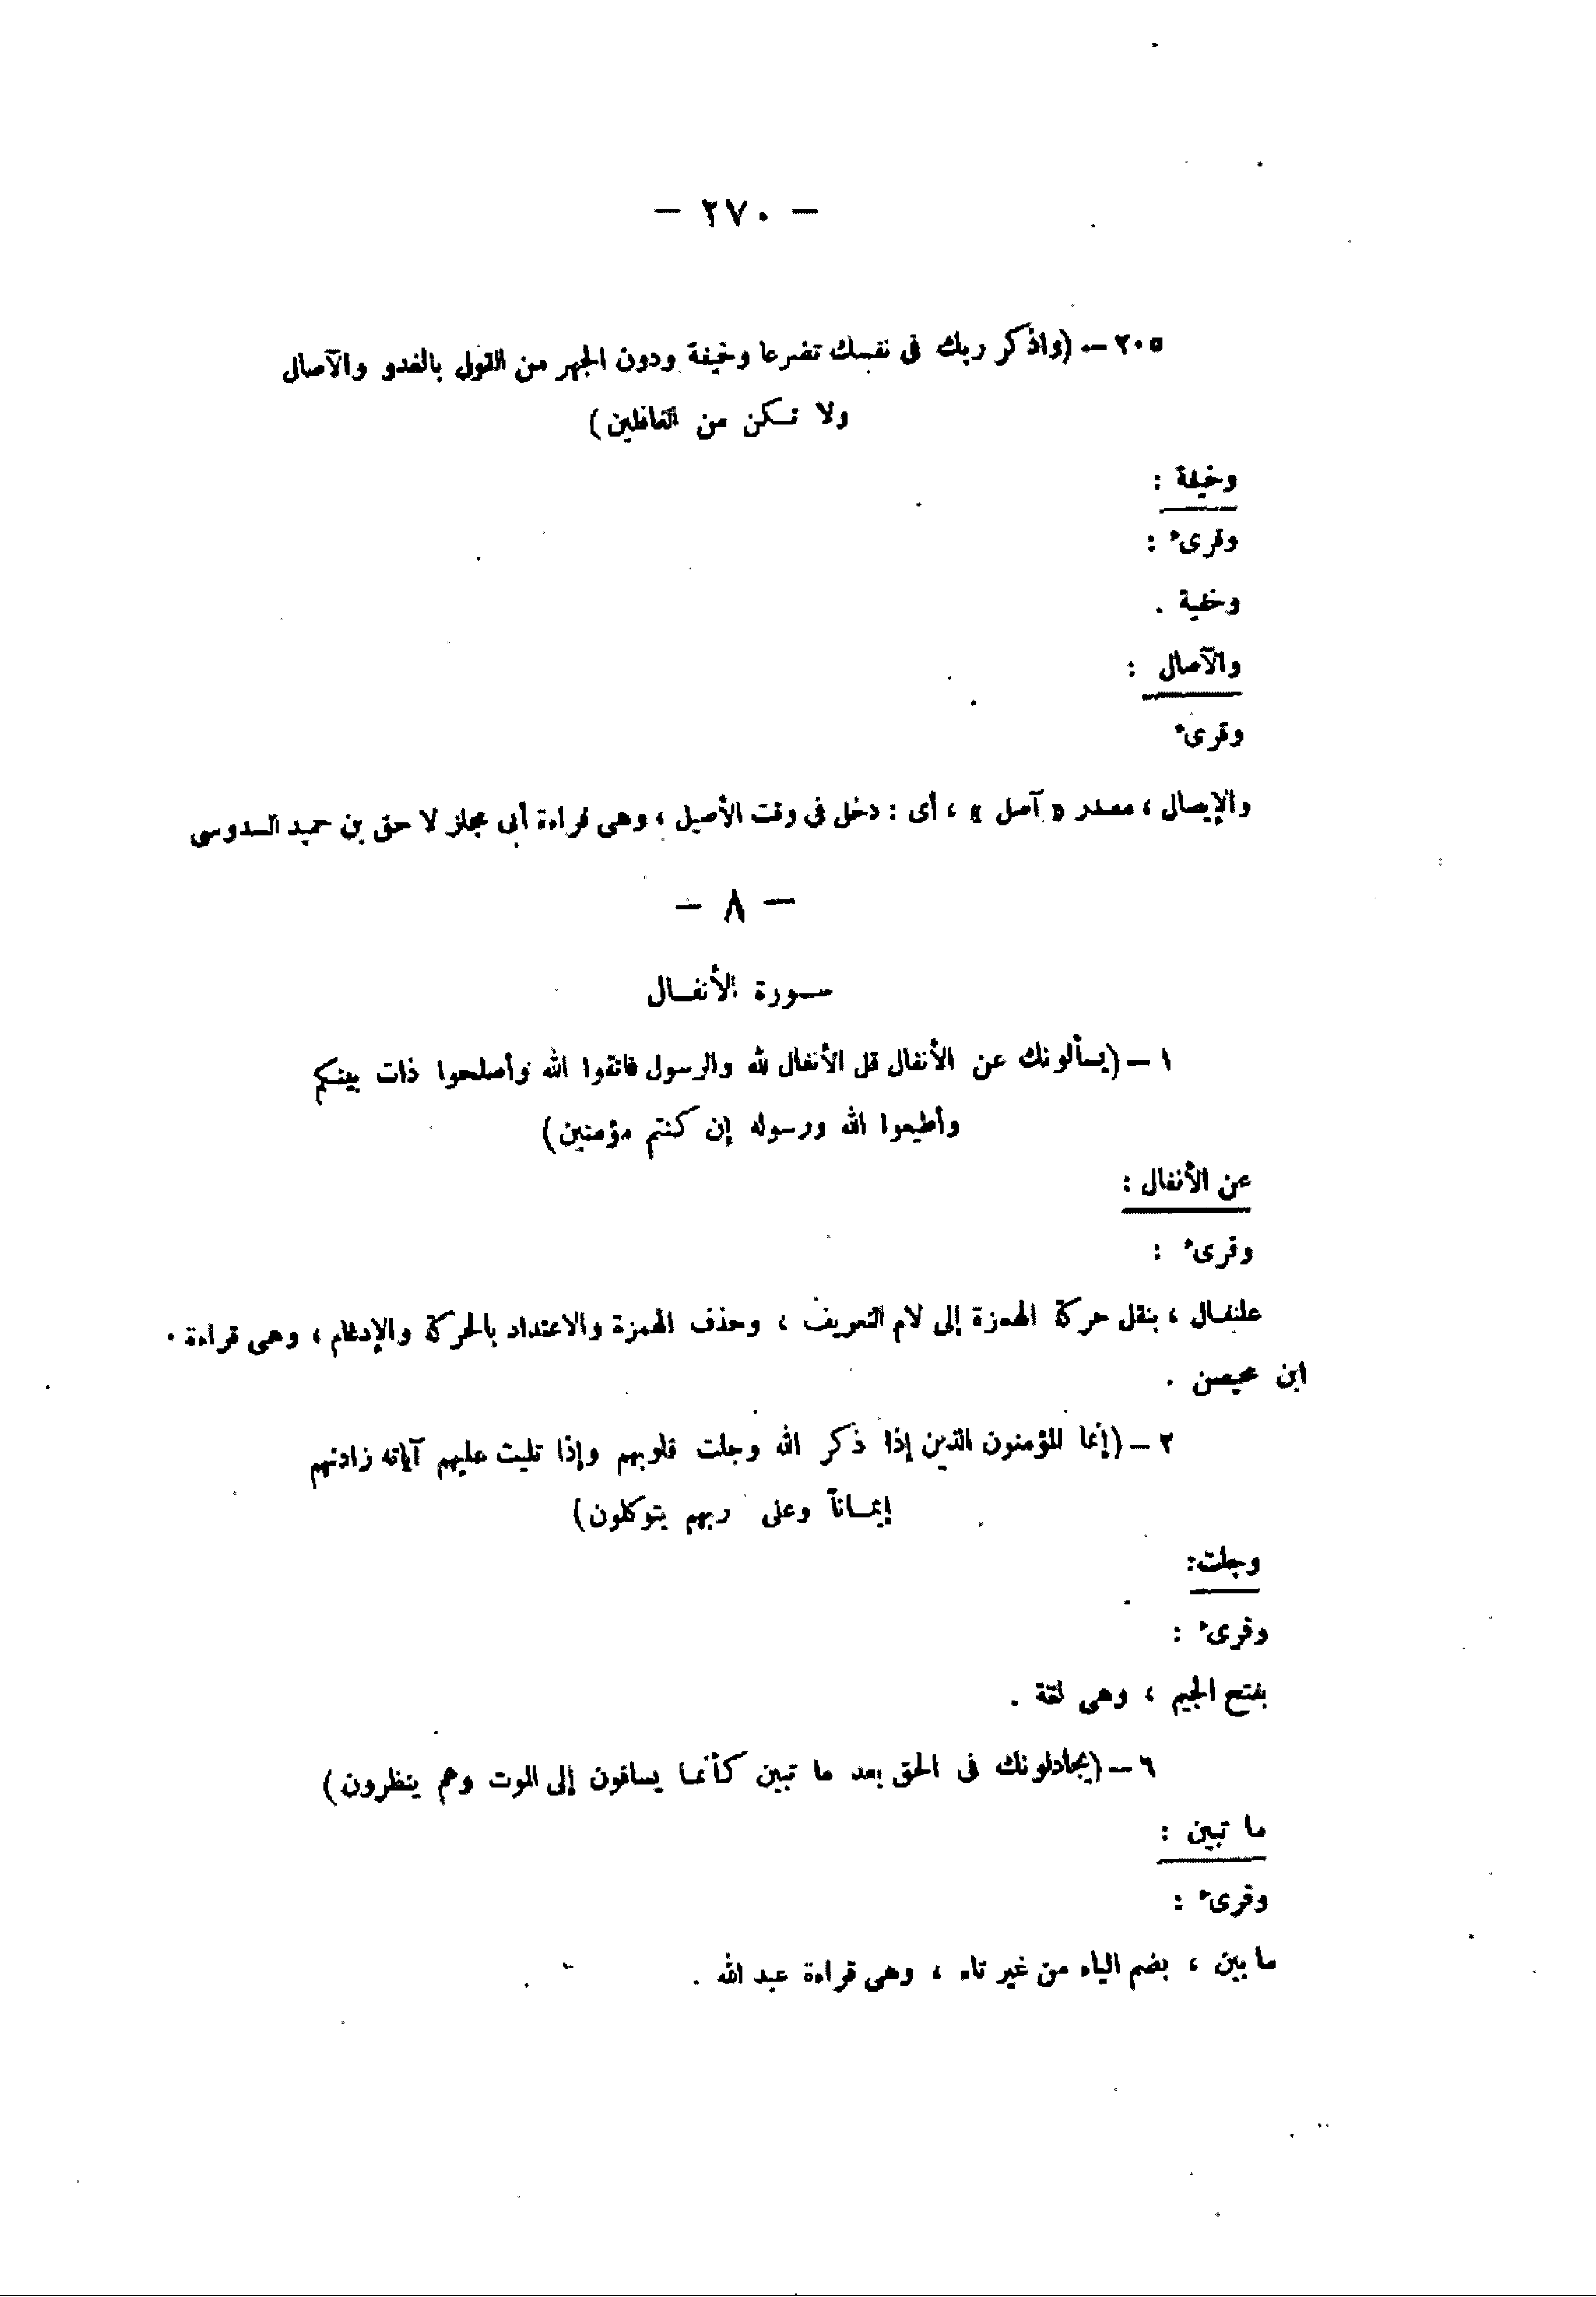 — ٢٧٠ —
٢٠٥ — (واذكر ربك فى نفسك تضرعا وخيفة ودون الجهر من القول بالغدو والآصال
ولا تكن من الغافلين)
وخيفة :
وقرىء :
وخفية .
والآصال :
وقرىء
والإيصال ، مصدر « آصل » ، أى : دخل فى وقت الأصيل ، وهى قراءة أبى مجلز لاحق بن حميد السدوسى
— ٨ —
سورة الأنفال
١ — (يسألونك عن الأنفال قل الأنفال لله والرسول فاتقوا الله وأصلحوا ذات بينكم
وأطيعوا الله ورسوله إن كنتم مؤمنين)
عن الأنفال :
وقرىء :
علنفال ، بنقل حركة الهمزة إلى لام التعريف ، وحذف الهمزة والاعتداد بالحركة والإدغام ، وهى قراءة
ابن محيصن .
٢ — (إنما المؤمنون الذين إذا ذكر الله وجلت قلوبهم وإذا تليت عليهم آياته زادتهم
إيمانآ وعلى ربهم يتوكلون)
وجلت:
وقرىء :
بفتح الجيم ، وهى لغة .
٦ — (يجادلونك فى الحق بعد ما تبين كأنما يساقون إلى الموت وهم ينظرون)
ما تبين :
وقرىء :
ما بين ، بضم الباء من غير تاء ، وهى قراءة عبد الله .